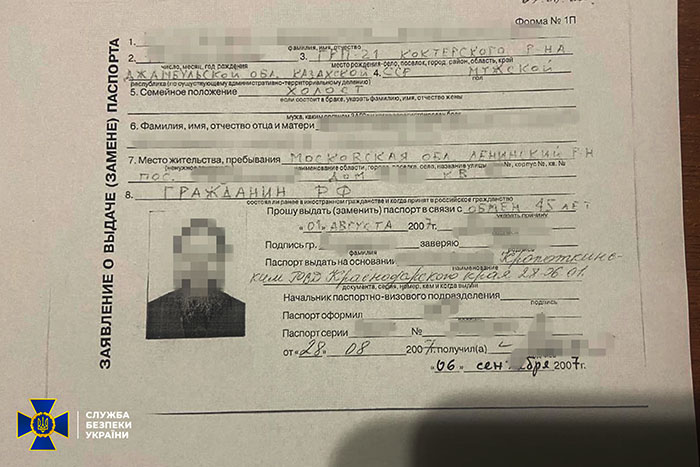 Форма № 1П
ЗАЯВЛЕНИЕ О ВЫДАЧЕ (ЗАМЕНЕ) ПАСПОРТА
1.
фамилия, имя, отчество
2. 3. ГРП-21 КОКТЕРСКОГО Р-НА
число, месяц, год рождения место рождения-село, поселок, город, район, область, край
ДЖАМБУЛЬСКОЙ ОБЛ. КАЗАХСКОЙ ССР 4. МУЖСКОЙ
республика (по существующему административно-территориальному делению) пол
5. Семейное положение ХОЛОСТ
если состоит в браке, указать фамилию, имя, отчество жены
6. Фамилия, имя, отчество отца и матери
7. Место жительства, пребывания МОСКОВСКАЯ ОБЛ ЛЕНИНСКИЙ Р-Н
наименование области, города, поселка, села, название улицы № корпус №, кв. №
ПОС ДОМ КВ
8. ГРАЖДАНИН РФ
состоял ли ранее в иностранном гражданстве и когда принят в российское гражданство
Прошу выдать (заменить) паспорт в связи с ОБМЕН 45 ЛЕТ
указать причину
«01» АВГУСТА 2007г.
Подпись гр. заверяю
фамилия подпись
Паспорт выдать на основании Кропоткинс-
наименование
ким ГОВД Краснодарского края 28.96.01.
документа, серия, номер, кем и когда выдан
Начальник паспортно-визового подразделения
подпись
Паспорт оформил
Паспорт серии №
от «28» 08 2007г. получил(а)
«06» сентября 2007г.
СЛУЖБА
БЕЗПЕКИ
УКРАЇНИ